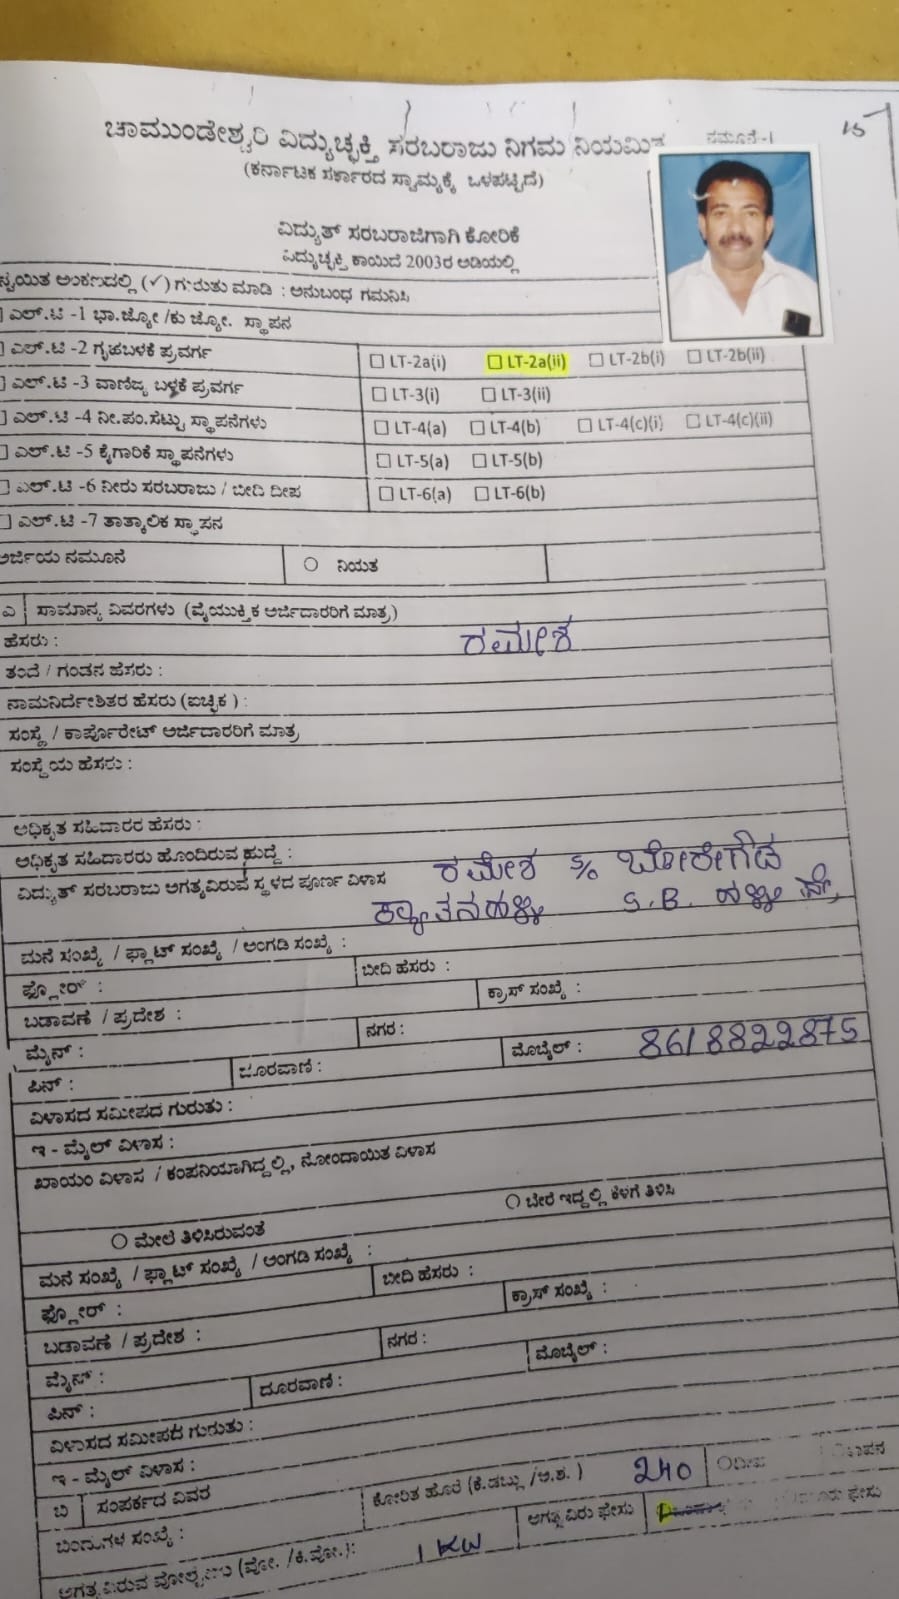 15
ಚಾಮುಂಡೇಶ್ವರಿ ವಿದ್ಯುಚ್ಛಕ್ತಿ ಸರಬರಾಜು ನಿಗಮ ನಿಯಮಿತ ನಮೂನೆ-1
(ಕರ್ನಾಟಕ ಸರ್ಕಾರದ ಸ್ವಾಮ್ಯಕ್ಕೆ ಒಳಪಟ್ಟಿದೆ)
ವಿದ್ಯುತ್ ಸರಬರಾಜಿಗಾಗಿ ಕೋರಿಕೆ
ವಿದ್ಯುಚ್ಛಕ್ತಿ ಕಾಯಿದೆ 2003ರ ಅಡಿಯಲ್ಲಿ
ಅಂಕಣದಲ್ಲಿ (✓) ಗುರುತು ಮಾಡಿ : ಅನುಬಂಧ ಗಮನಿಸಿ
ಎಲ್.ಟಿ -1 ಭಾ.ಜ್ಯೋ /ಕು ಜ್ಯೋ. ಸ್ಥಾಪನ
ಎಲ್.ಟಿ -2 ಗೃಹಬಳಕೆ ಪ್ರವರ್ಗ ☐ LT-2a(i) ☐ LT-2a(ii) ☐ LT-2b(i) ☐ LT-2b(ii)
ಎಲ್.ಟಿ -3 ವಾಣಿಜ್ಯ ಬಳಕೆ ಪ್ರವರ್ಗ ☐ LT-3(i) ☐ LT-3(ii)
ಎಲ್.ಟಿ -4 ನೀ.ಪಂ.ಸೆಟ್ಟು ಸ್ಥಾಪನೆಗಳು ☐ LT-4(a) ☐ LT-4(b) ☐ LT-4(c)(i) ☐ LT-4(c)(ii)
ಎಲ್.ಟಿ -5 ಕೈಗಾರಿಕೆ ಸ್ಥಾಪನೆಗಳು ☐ LT-5(a) ☐ LT-5(b)
ಎಲ್.ಟಿ -6 ನೀರು ಸರಬರಾಜು / ಬೀದಿ ದೀಪ ☐ LT-6(a) ☐ LT-6(b)
ಎಲ್.ಟಿ -7 ತಾತ್ಕಾಲಿಕ ಸ್ಥಾಪನ
ಅರ್ಜಿಯ ನಮೂನೆ ○ ನಿಯತ
ಎ ಸಾಮಾನ್ಯ ವಿವರಗಳು (ವೈಯುಕ್ತಿಕ ಅರ್ಜಿದಾರರಿಗೆ ಮಾತ್ರ)
ಹೆಸರು : ರಮೇಶ
ತಂದೆ / ಗಂಡನ ಹೆಸರು :
ನಾಮನಿರ್ದೇಶಿತರ ಹೆಸರು (ಐಚ್ಛಿಕ ) :
ಸಂಸ್ಥೆ / ಕಾರ್ಪೊರೇಟ್ ಅರ್ಜಿದಾರರಿಗೆ ಮಾತ್ರ
ಸಂಸ್ಥೆಯ ಹೆಸರು :
ಅಧಿಕೃತ ಸಹಿದಾರರ ಹೆಸರು :
ಅಧಿಕೃತ ಸಹಿದಾರರು ಹೊಂದಿರುವ ಹುದ್ದೆ :
ವಿದ್ಯುತ್ ಸರಬರಾಜು ಅಗತ್ಯವಿರುವ ಸ್ಥಳದ ಪೂರ್ಣ ವಿಳಾಸ ರಮೇಶ S/o ಬೋರೇಗೌಡ
ಕ್ಯಾತನಹಳ್ಳಿ S.B. ಹಳ್ಳಿ
ಮನೆ ಸಂಖ್ಯೆ / ಫ್ಲಾಟ್ ಸಂಖ್ಯೆ / ಅಂಗಡಿ ಸಂಖ್ಯೆ :
ಫ್ಲೋರ್ : ಬೀದಿ ಹೆಸರು :
ಬಡಾವಣೆ / ಪ್ರದೇಶ : ಕ್ರಾಸ್ ಸಂಖ್ಯೆ :
ಮೈನ್ : ನಗರ :
ಪಿನ್ : ದೂರವಾಣಿ : ಮೊಬೈಲ್ : 8618822875
ವಿಳಾಸದ ಸಮೀಪದ ಗುರುತು :
ಇ - ಮೈಲ್ ವಿಳಾಸ :
ಖಾಯಂ ವಿಳಾಸ / ಕಂಪನಿಯಾಗಿದ್ದಲ್ಲಿ, ನೋಂದಾಯಿತ ವಿಳಾಸ
○ ಮೇಲೆ ತಿಳಿಸಿರುವಂತೆ ○ ಬೇರೆ ಇದ್ದಲ್ಲಿ ಕೆಳಗೆ ತಿಳಿಸಿ
ಮನೆ ಸಂಖ್ಯೆ / ಫ್ಲಾಟ್ ಸಂಖ್ಯೆ / ಅಂಗಡಿ ಸಂಖ್ಯೆ :
ಫ್ಲೋರ್ : ಬೀದಿ ಹೆಸರು :
ಬಡಾವಣೆ / ಪ್ರದೇಶ : ಕ್ರಾಸ್ ಸಂಖ್ಯೆ :
ಮೈನ್ : ನಗರ :
ಪಿನ್ : ದೂರವಾಣಿ : ಮೊಬೈಲ್ :
ವಿಳಾಸದ ಸಮೀಪದ ಗುರುತು :
ಇ - ಮೈಲ್ ವಿಳಾಸ :
ಬಿ ಸಂಪರ್ಕದ ವಿವರ ಕೋರಿತ ಹೊರೆ (ಕೆ.ಡಬ್ಲು /ಅ.ಶ. ) 240 ○ದೀಪ
ಬಿಂದುಗಳ ಸಂಖ್ಯೆ : ಅಗತ್ಯವಿರು ಫೇಸು ಫೇಸು
ಅಗತ್ಯವಿರುವ (ವೋ. /ಕಿ.ವೋ.): 1 KW